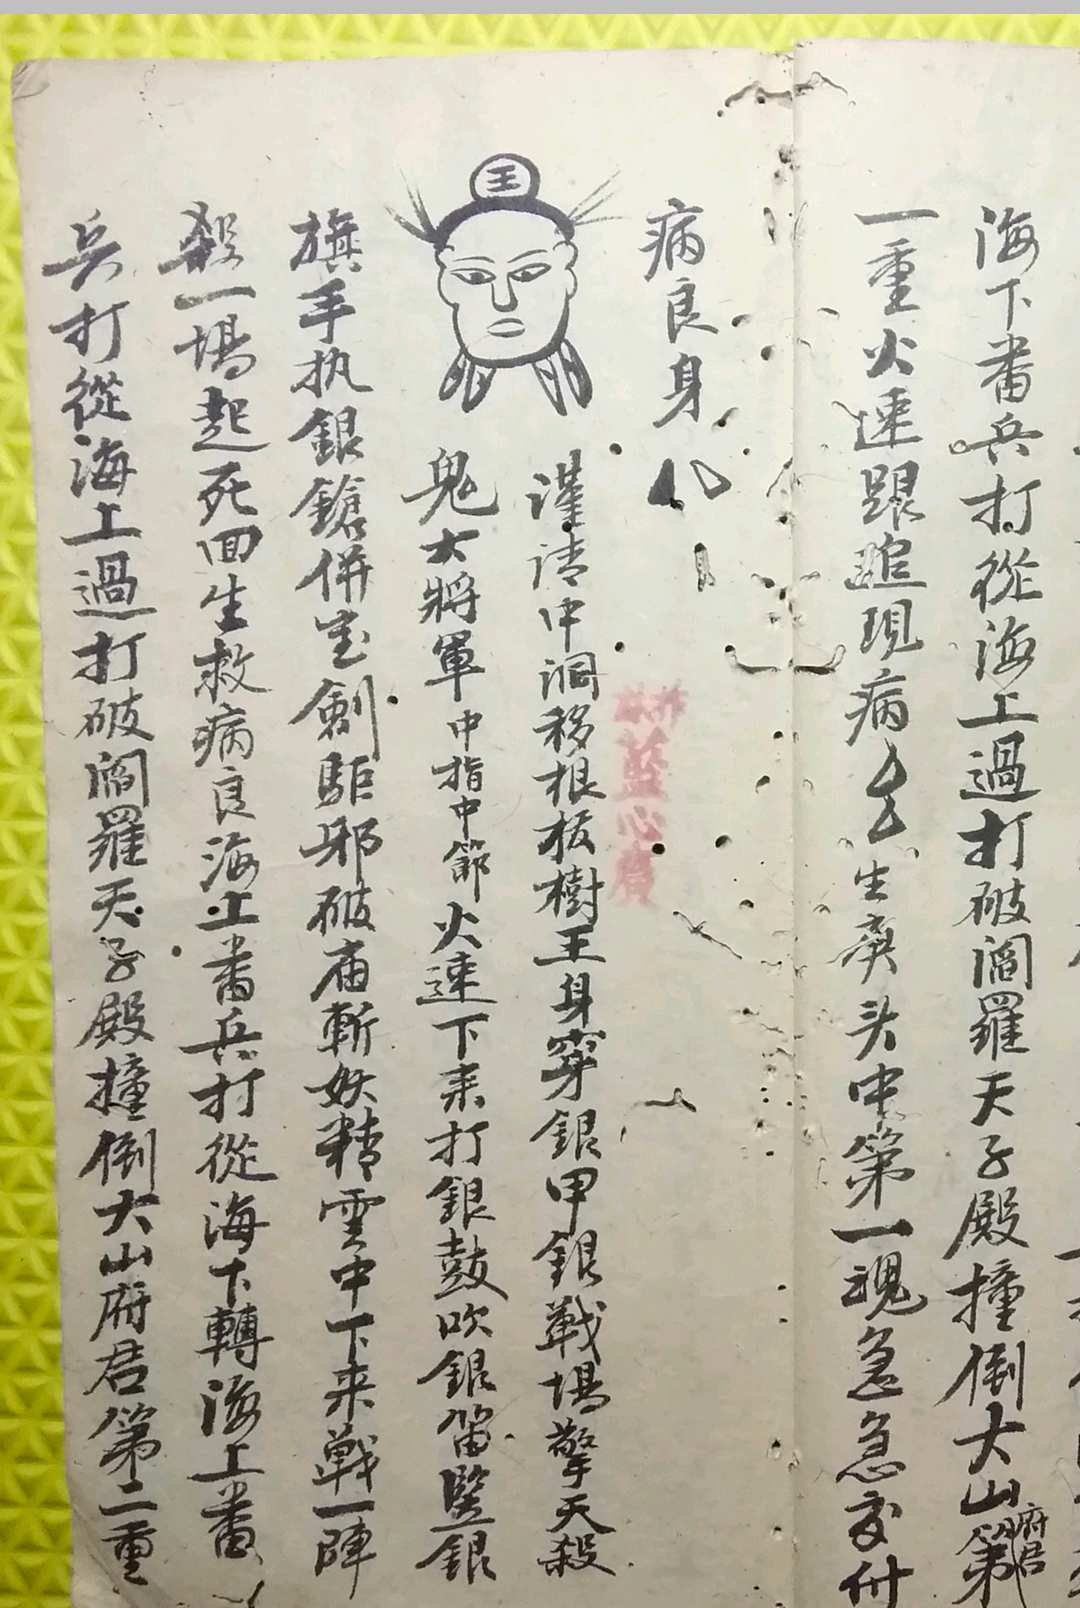 海下番兵打從海上過打破閻羅天子殿撞倒大山府君第
一重火速跟追現病生庚头中第一魂急急交付
病良身
王
謹请中洞移根板樹王身穿銀甲銀戦場擎天殺
鬼大將軍中指中節火速下来打銀鼓吹銀笛竪銀
旗手执銀鎗併宝劍駈邪破庙斬妖精雲中下来戦一陣
殺一場起死回生救病良海上番兵打從海下轉海上番
兵打從海上過打破閻羅天子殿撞倒大山府君第二重